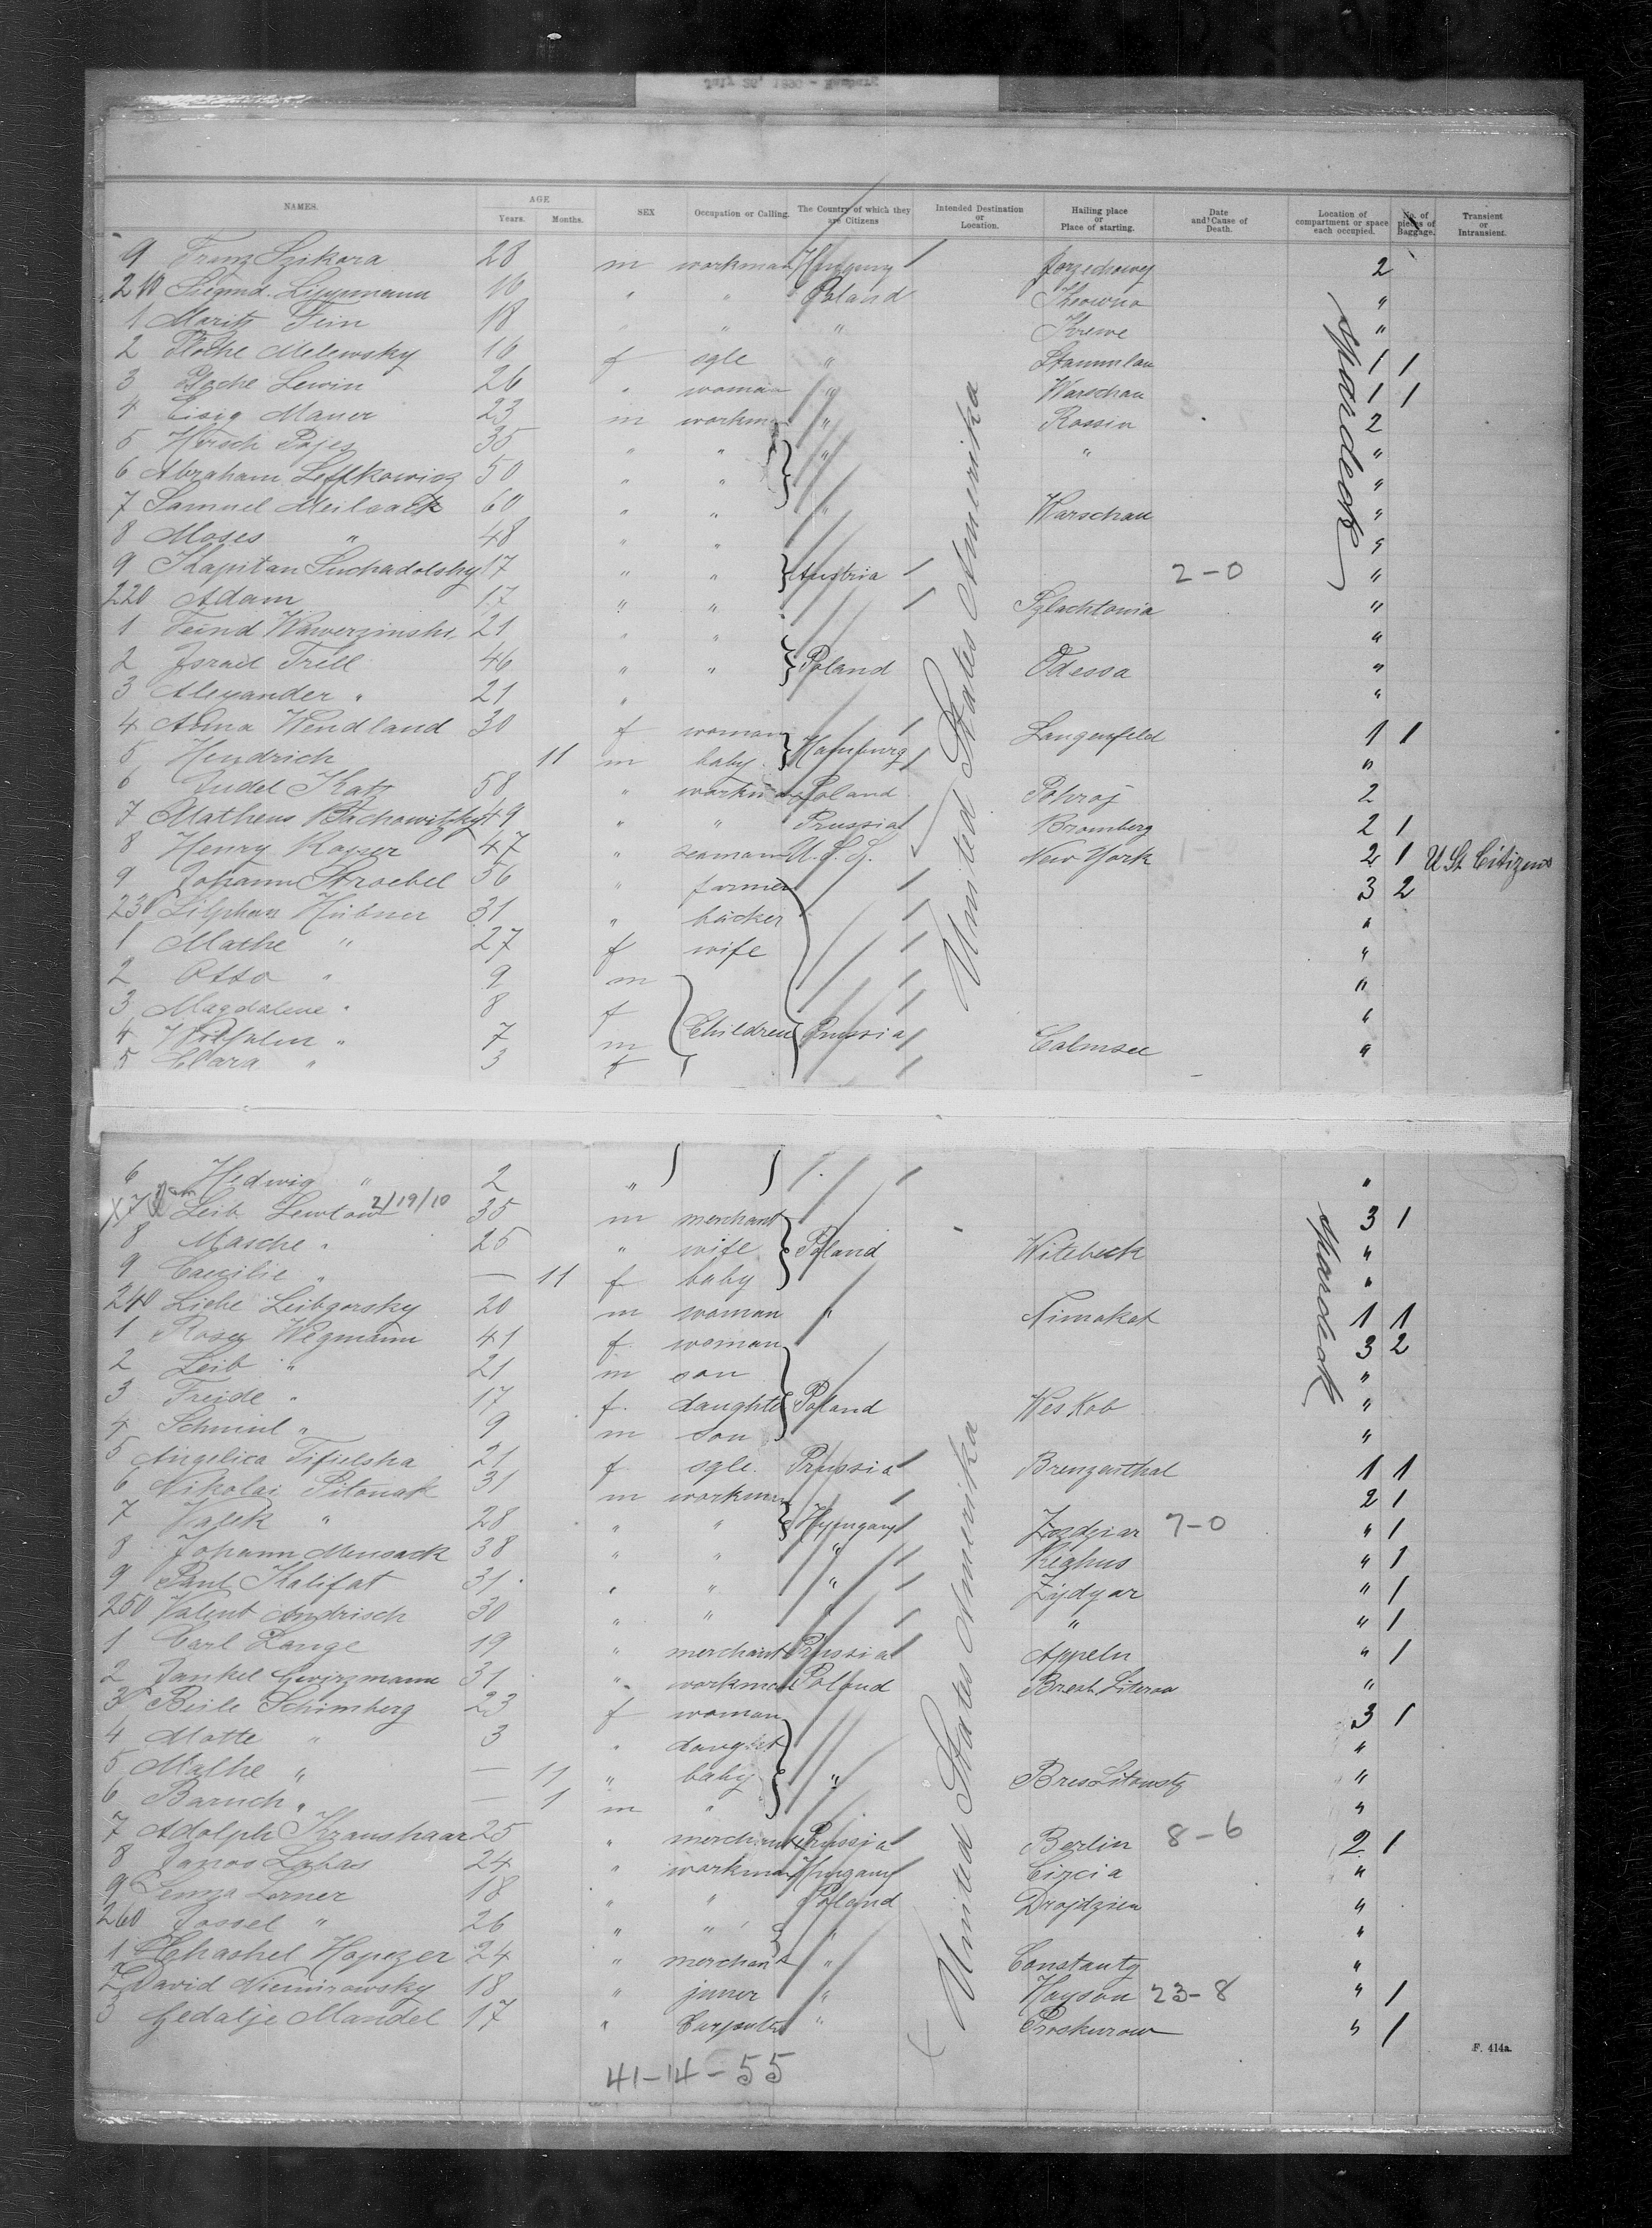 NAMES. AGE Years. Months. SEX Occupation or Calling. The Country of which they are Citizens Intended Destination or Location. Hailing place or Place of starting. Date and Cause of Death. Location of compartment or space each occupied. No. of pieces of Baggage. Transient or Intransient.
9 Franz Szikora 28 m workman Hungary 2
210 Siegmd. Lippmann 16 " " Poland "
1 Moritz Fein 18 " " " Krewe "
2 Melewsky 16 f sgle " 1 1
3 Lewin 26 " woman " Warschau 1 1
4 Eisig Maner 23 m workm " Rossin 2
5 Hirsch Pojes 35 " " " " "
6 Abraham Leffkowicz 50 " " "
7 Samuel 60 " " " Warschau "
8 Moses " 48 " " "
9 Kapitan Suchadolsky 17 " " Austria 2-0 "
220 Adam 17 " " "
1 21 " " "
2 Israel Trell 46 " " Poland Odessa "
3 Alexander " 21 " "
4 Anna Wendland 30 f woman Langenfeld 1 1
5 Hendrich 11 m baby Hamburg "
6 Judel Katz 58 " workman Poland 2
7 Matheus 49 " " Prussia Bromberg 2 1
8 Henry 47 " seaman U. S. New York 2 1 U St Citizens
9 Johann Stroebel 56 " farmer 3 2
230 Hübner 31 " bäcker "
1 Mathe " 27 f wife "
2 Otto " 9 m "
3 Magdalene " 8 f "
4 " 7 m Children Prussia Calmsee "
5 Clara " 3 f
United States Amerika
Spardeck
6 Hedwig " 2 " "
X 7 Leib Lewtow 2/19/10 35 m merchant 3 1
8 Masche " 25 " wife Poland Witebeck "
9 Caecilie " — 11 f baby "
240 Liebe Leibgorsky 20 m woman " Nimakat 1 1
1 Rosa Wegmann 41 f woman 3 2
2 Leib " 21 m son "
3 Freide " 17 f. daughte Poland Weskob "
4 Schmul " 9 m son "
5 Angelica 21 f sgle. Prussia Brenzenthal 1 1
6 Nikolai Pitonak 31 m workman 2 1
7 Valek " 28 " " Hungary 7-0 " 1
8 Johann Mensack 38 " " " Reghus " 1
9 Paul Kalifat 31 " " " Zijdyar " 1
250 Valent Andrisch 30 " " " " 1
1 Carl Lange 19 " merchant Prussia Appeln " 1
2 Jankel 31 " workman Poland "
3 Beile Schimberg 23 f woman 3 1
4 Motte " 3 " daughter "
5 Malhe " — 11 " baby " "
6 Baruch " — 1 m " "
7 Adolph Kraushaar 25 " merchant Prussia Berlin 8-6 2 1
8 Janos 24 " workman Hungary Circia "
9 Lerner 18 " " Poland Drojdzien "
260 Jossel " 26 " " "
1 24 " merchant " Constanty "
2 David Niemirowsky 18 " " Hayson 23-8 " 1
3 Gedalje Mandel 17 " Carpenter " Proskurow " 1
United States Amerika
Spardeck
41-14-55
F. 414a.